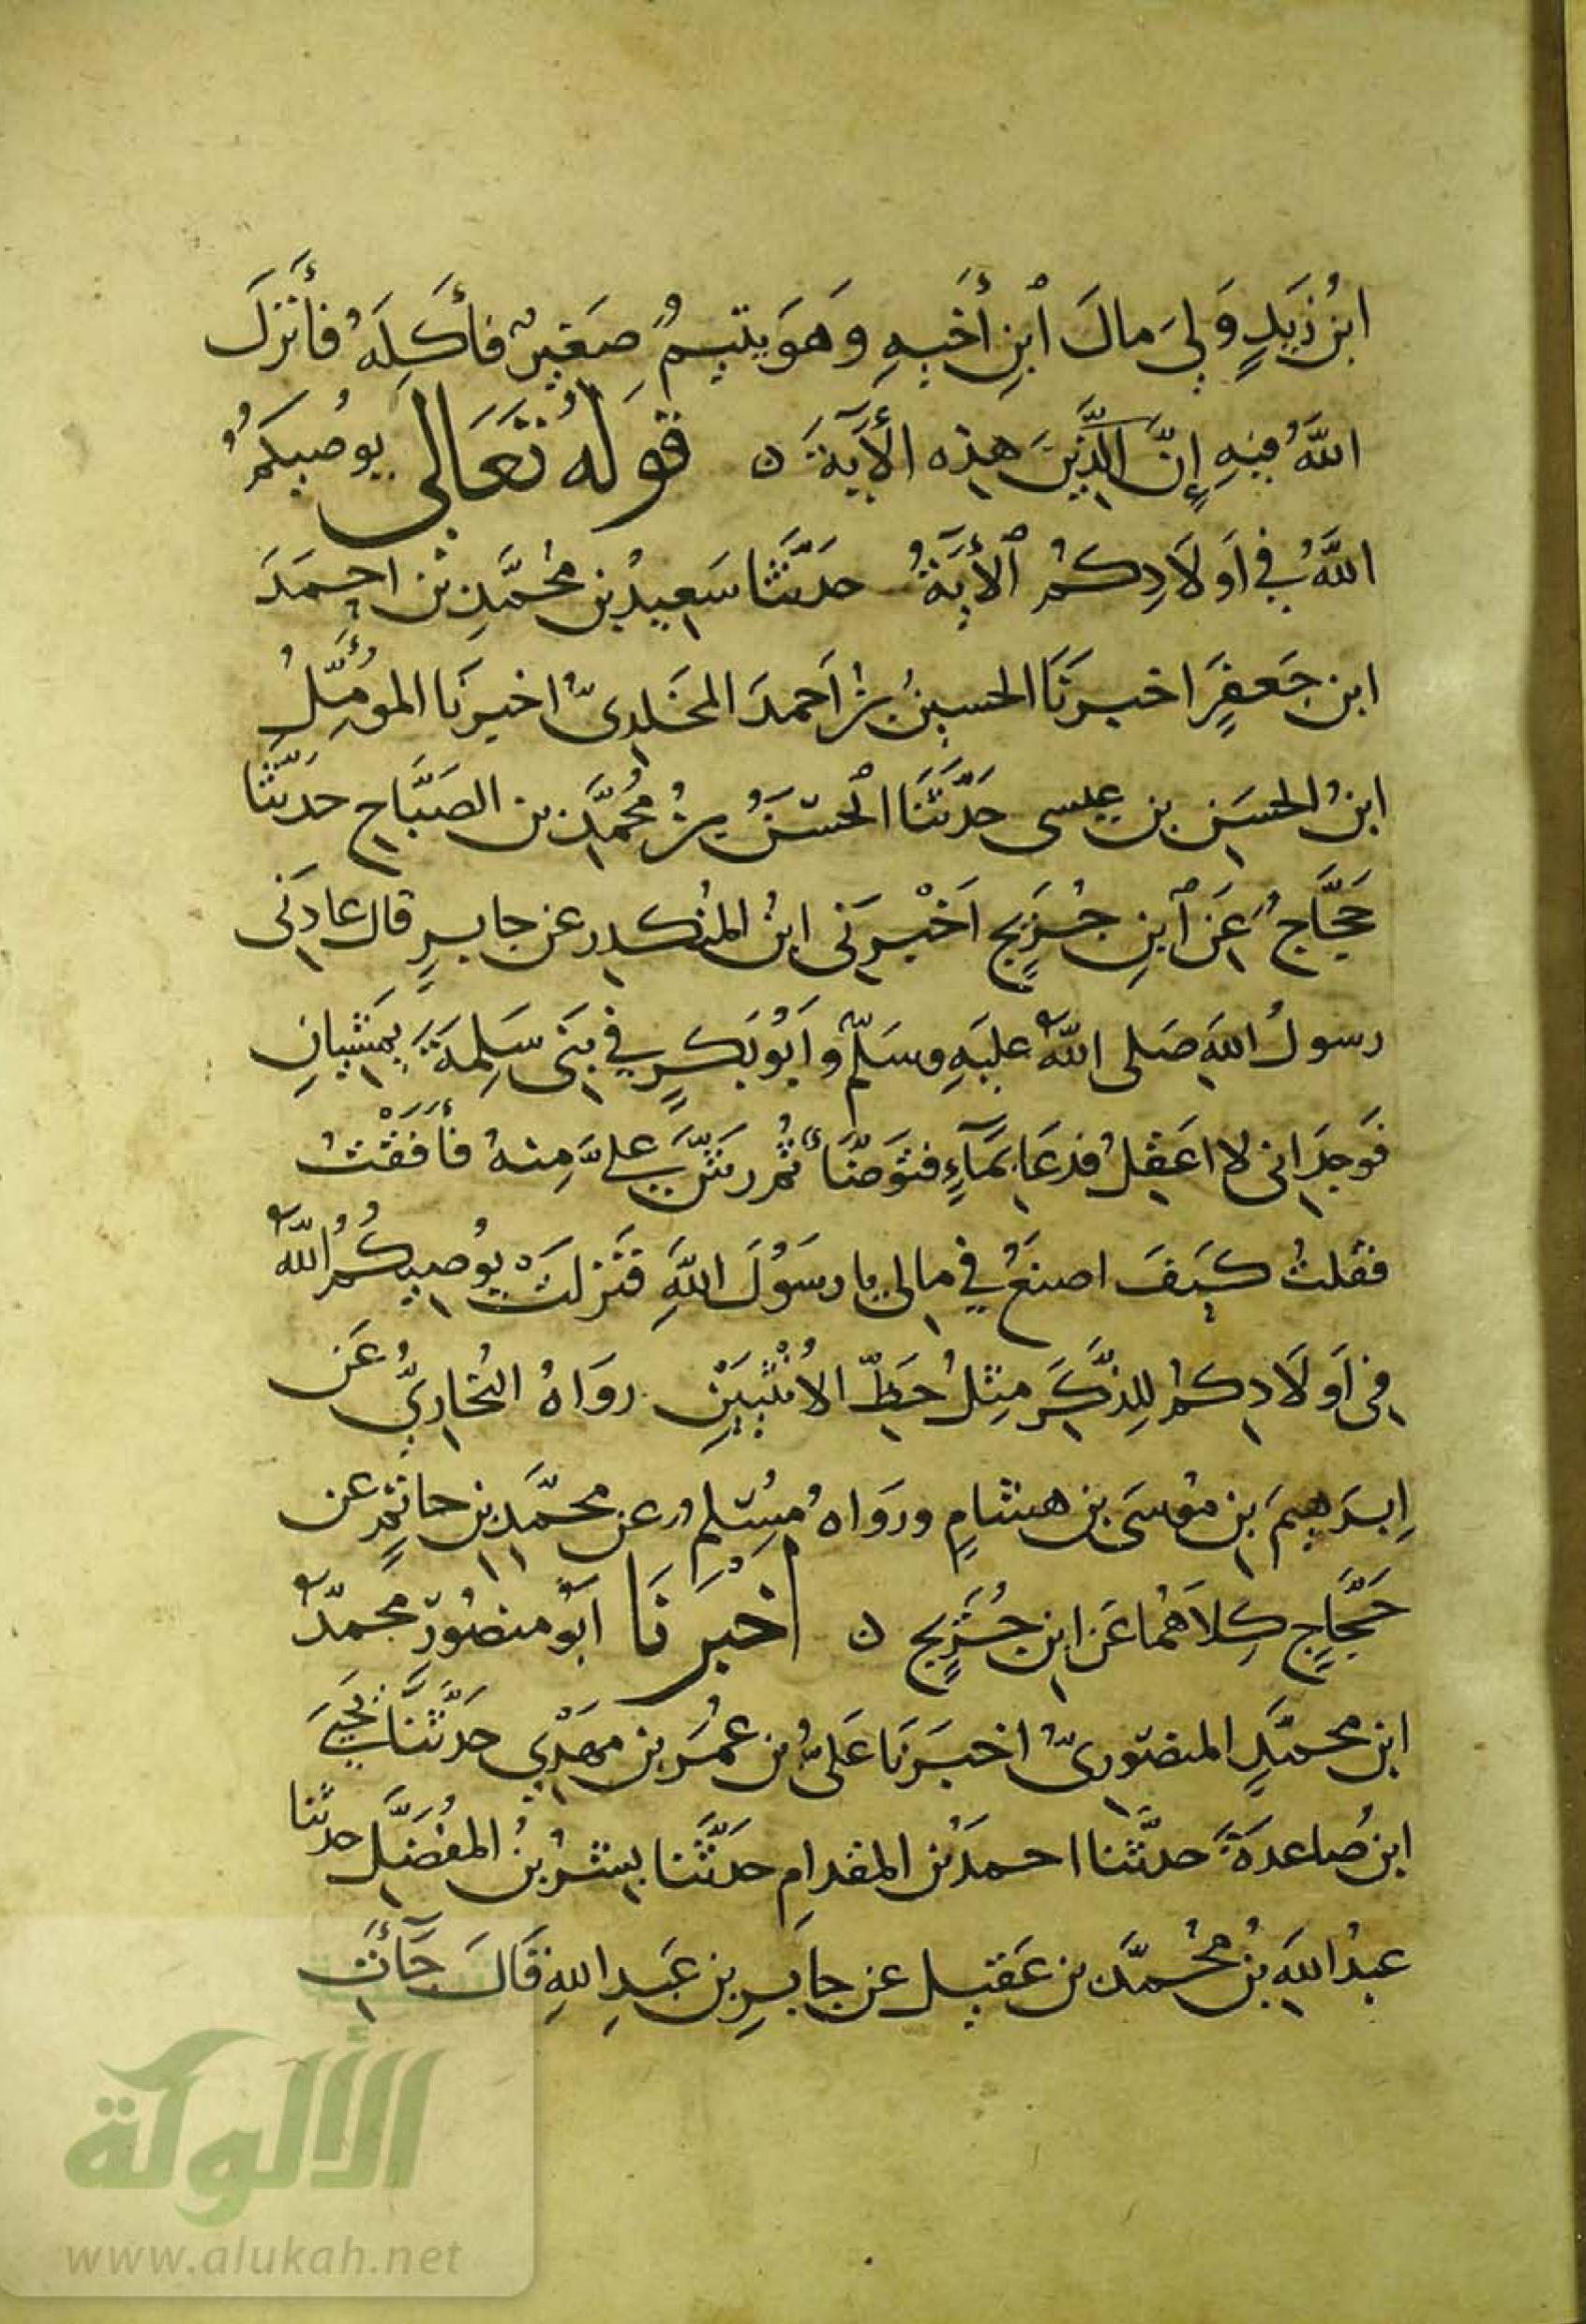 ابنُ زَيدٍ وَلِيَ مالَ ٱبنِ أَخيهِ وَهَوَ يتيمٌ صَغيرٌ فأكَلِهَ فأَنزلَ
اللهُ فيهِ إنَّ الَّذينَ هذه الأيَةَ ٥ قَولُه تَعَالى يوُصيكُم
اللهُ فِي اَولاَدِكمُ ٱلأيَةُ حدَّثنا سَعيدُ بن محُمَّدِ بن احمَدَ
ابن جَعفرٍ اخبرَنَا الحسينُ بنُ اَحمدَ المخَلدىُّ اخبرنَا المؤمَّلُ
ابنُ الحسَن بن عيسى حَدَّثَنَا ٱلحسَنُ بنُ مُحُمَّد بن الصَبَّاح حَدَّثنَا
حَجَّاجٌ عَن ٱبنِ جُرَيجٍ اَخْبرَنى ابنُ المنُكدر عن جابرٍ قال عادَنى
رسولُ اللهِ صَلى اللهُ عليَهِ وسَلّم وَاَبُو بَكرٍ في بَنى سَلِمَةَ يمَشيانِ
فوَجدَانى لا اعَقلُ فدعَا بمَآءٍ فتوَضَّأَ ثُم رشَّ عليَّ مِنهُ فأفَقْتُ
فقلتُ كيَفَ اصنَعُ في مالى يا رسَوُلَ اللهِ فنَزلتْ يوُصيكُمُ اللهُ
فى اَولَادِكمُ للِذَّكَرِ مِثلُ حَظِّ الاُنْثيَيْنِ رواَهُ البُخاريُّ عَن
إبرَهيمَ بن موُسَى بن هشامٍ ورَوَاهُ مُسْلمٌ عن محمَّد بن حاتمٍ عن
حَجَّاجٍ كِلاَهُمَا عَن ابن جُرَيجٍ ٥ اخْبَرنَا اَبوُ منصُورٍ محمدُ
ابن محمدٍ المنصُورىُّ اخبَرَنَا عَلىُّ بن عُمَرَ بن مَهَدْيٍ حدَّثنَا يحَيَى
ابن صُاعدَةَ حدثَّنا احمدَ بن المقدامِ حدَّثَنا بِشرُ بنُ المفُضَّل حدثَّنا
عبدُ اللهِ بنُ محُمَّد بن عَقيل عن جابرِ بن عَبدِ اللهِ قَالَ جَآءَت
الألوكة
www.alukah.net